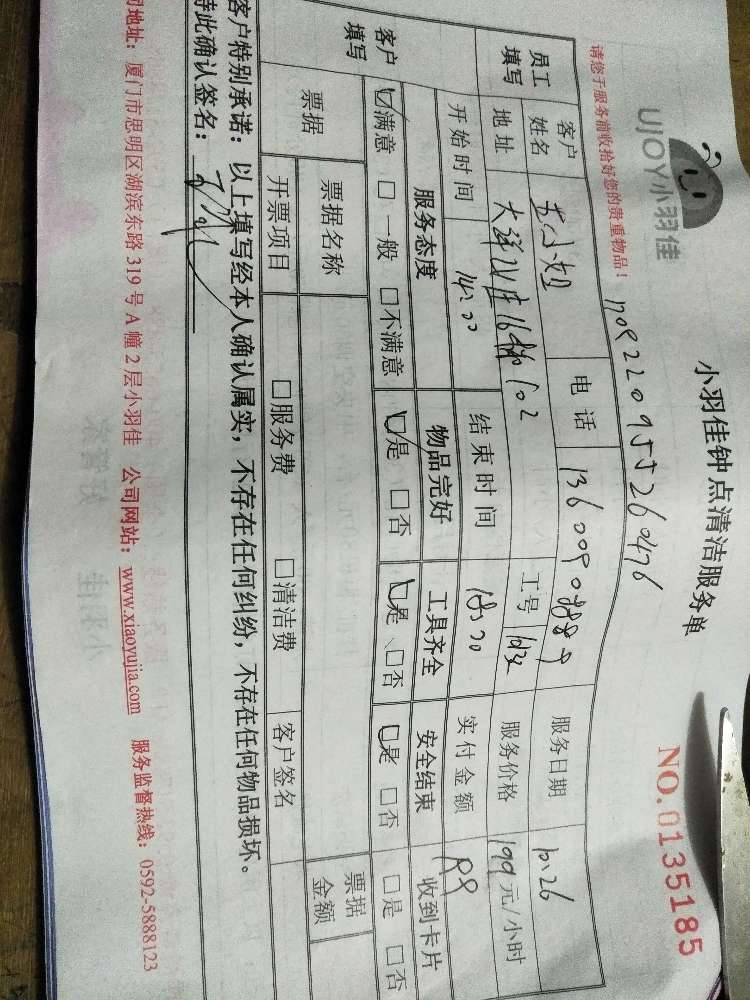 UJOY小羽佳
小羽佳钟点清洁服务单
NO.0135185
请您于服务前收拾好您的贵重物品！
员工填写
客户姓名
小姐
电话
服务日期
10.26
地址
102
工号
1032
服务价格
199元/小时
开始时间
14:00
结束时间
18:00
实付金额
客户填写
服务态度
物品完好
工具齐全
安全结束
收到卡片
☑满意 □一般 □不满意
☑是 □否
☑是 □否
☑是 □否
□是 □否
票据
票据名称
票据金额
开票项目
□服务费 □清洁费
客户签名
客户特别承诺：以上填写经本人确认属实，不存在任何纠纷，不存在任何物品损坏。
特此确认签名：
司地址：厦门市思明区湖滨东路 319 号 A 幢 2 层小羽佳 公司网站：www.xiaoyujia.com 服务监督热线：0592-5888123